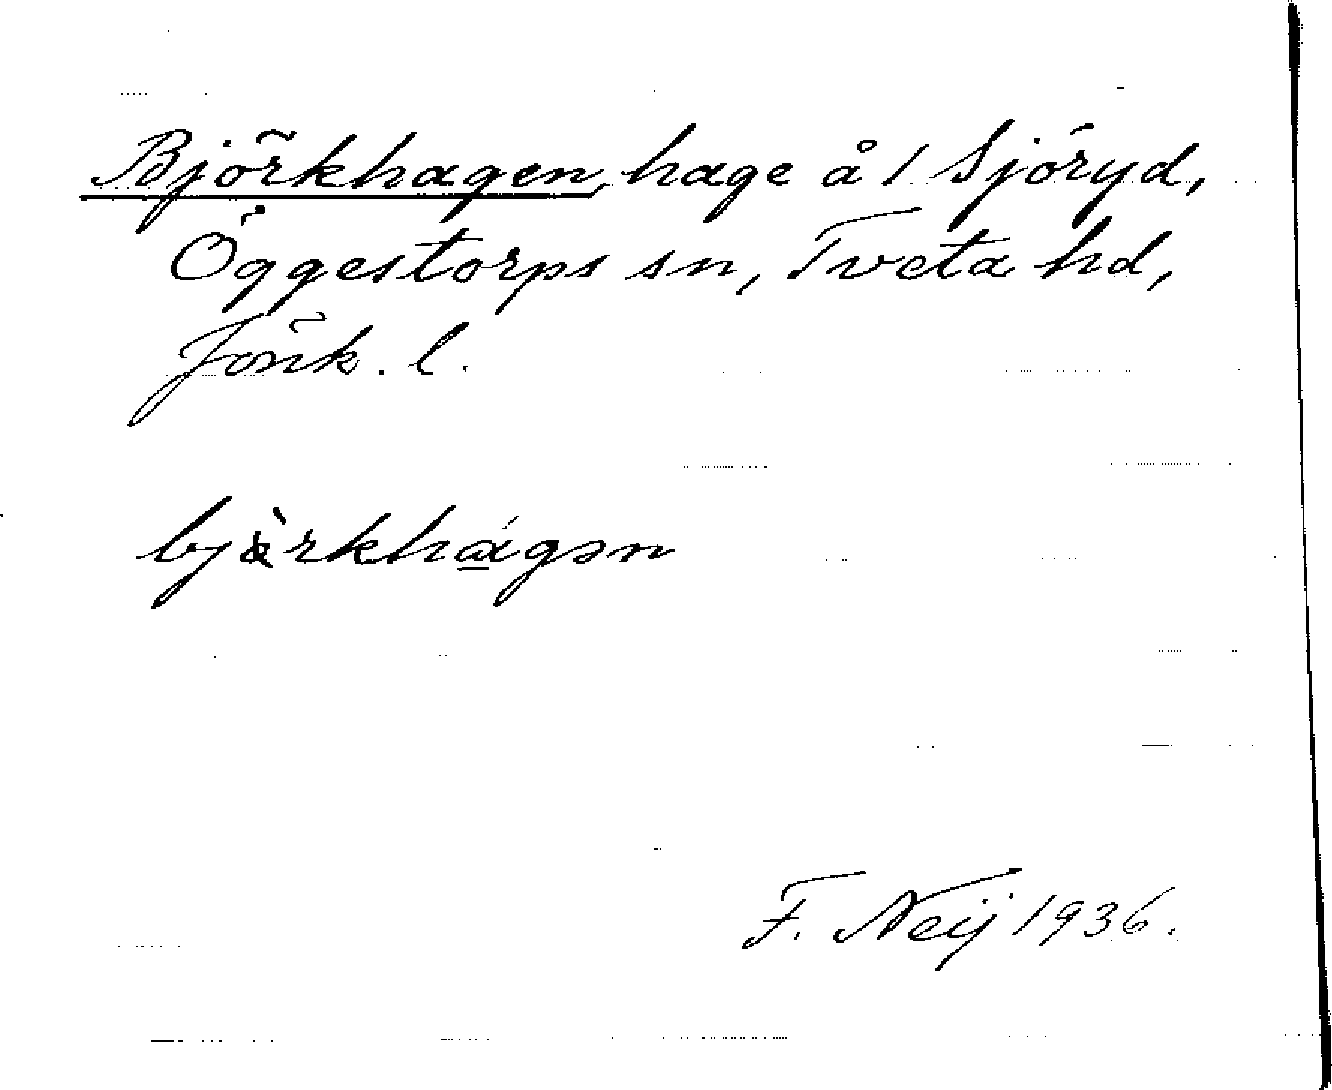 Björkhagen, hage å 1 Sjöryd,
Öggestorps sn, Tveta hd,
Jönk. l.
bjàrkhágən
F. Neij 1936.